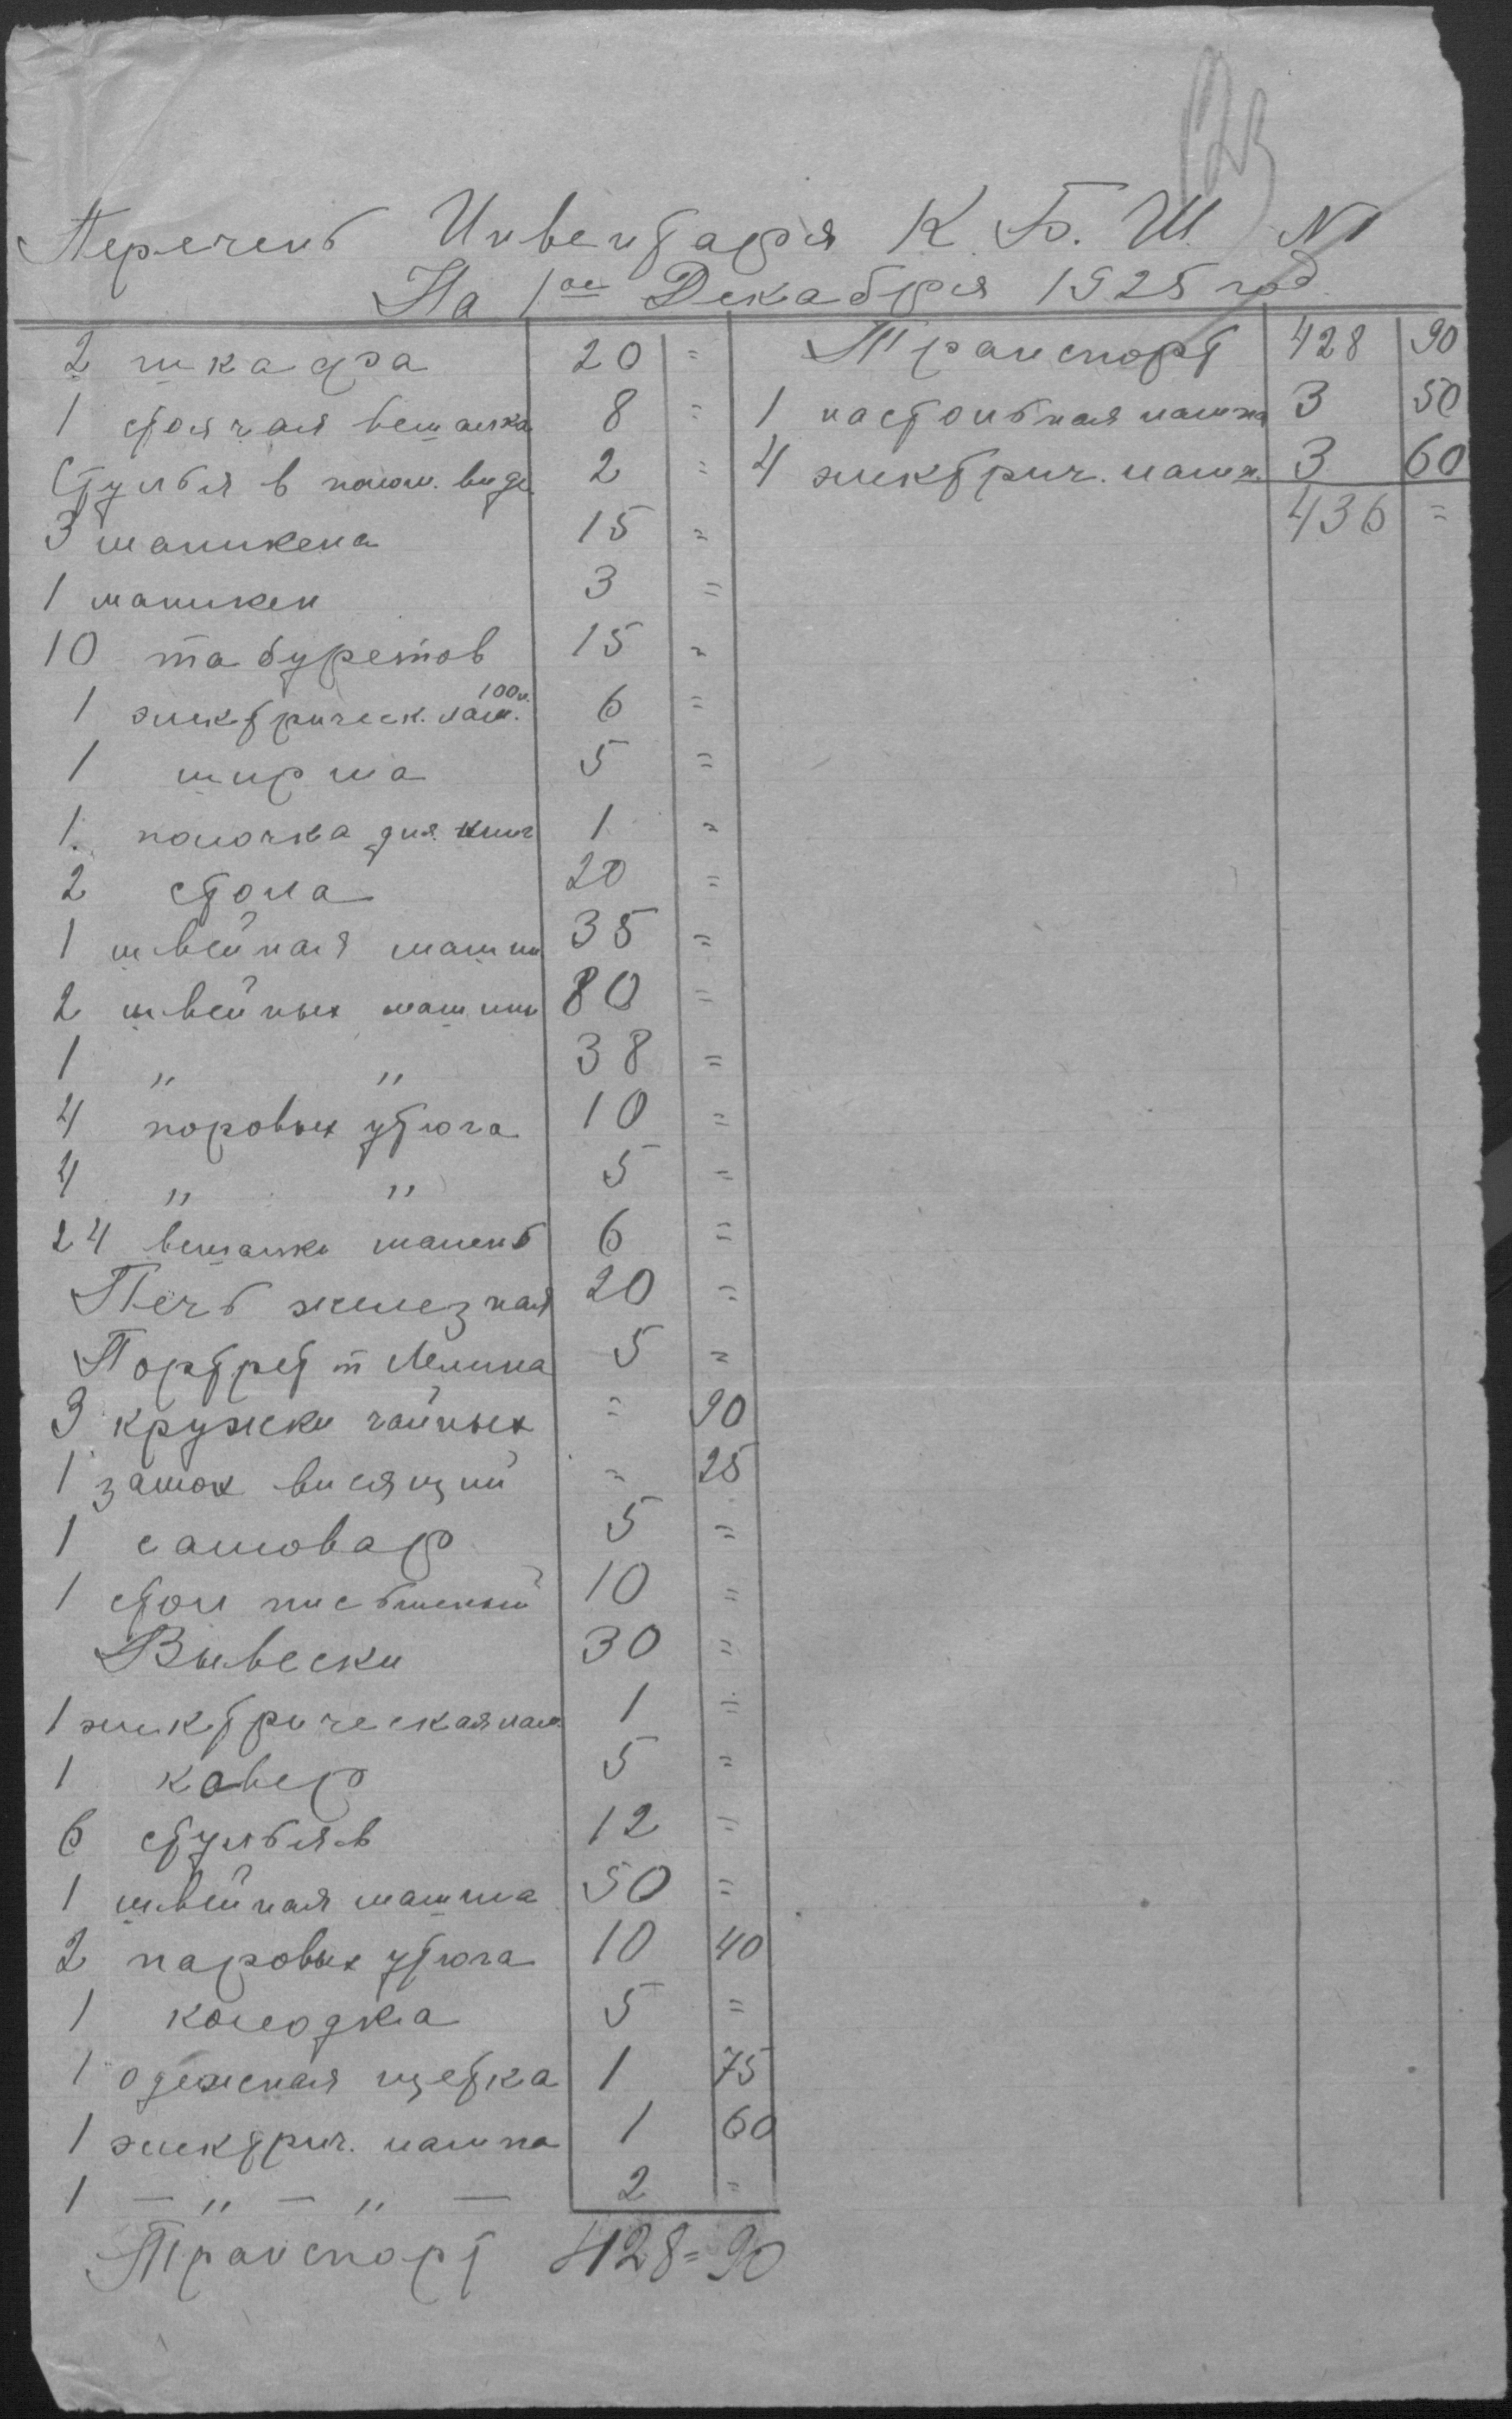 123
Перечень Инвентаря К. Б. Ш. № 1
На 1ое Декабря 1925 год
2 шкафа 20 =
1 стоячая вешалка 8 =
Стулья в полом. виде 2 =
3 маникена 15 =
1 маникен 3 =
10 табуретов 15 =
1 электрическ. лам. 100 в. 6 =
1 ширма 5 =
1 полочка для книг 1 =
2 стола 20 =
1 швейная машин 35 =
2 швейных машин 80 =
1 " " 38 =
4 поровых утюга 10 =
4 " " 5 =
24 вешалки мален 6 =
Печь железная 20 =
Портрет т Ленина 5 =
3 кружки чайных = 90
1 замок висящий = 25
1 самовар 5 =
1 стол письменый 10 =
Вывески 30 =
1 электрическая лам. 1 =
1 кавер 5 =
6 стульяв 12 =
1 швейная машина 50 =
2 паровых утюга 10 40
1 колодка 5 =
1 одежная щетка 1 75
1 электрич. лампа 1 60
1 — " — " — 2 =
Транспорт 428 = 90
Транспорт 428 90
1 настольная лампа 3 50
4 электрич. ламп. 3 60
436 =